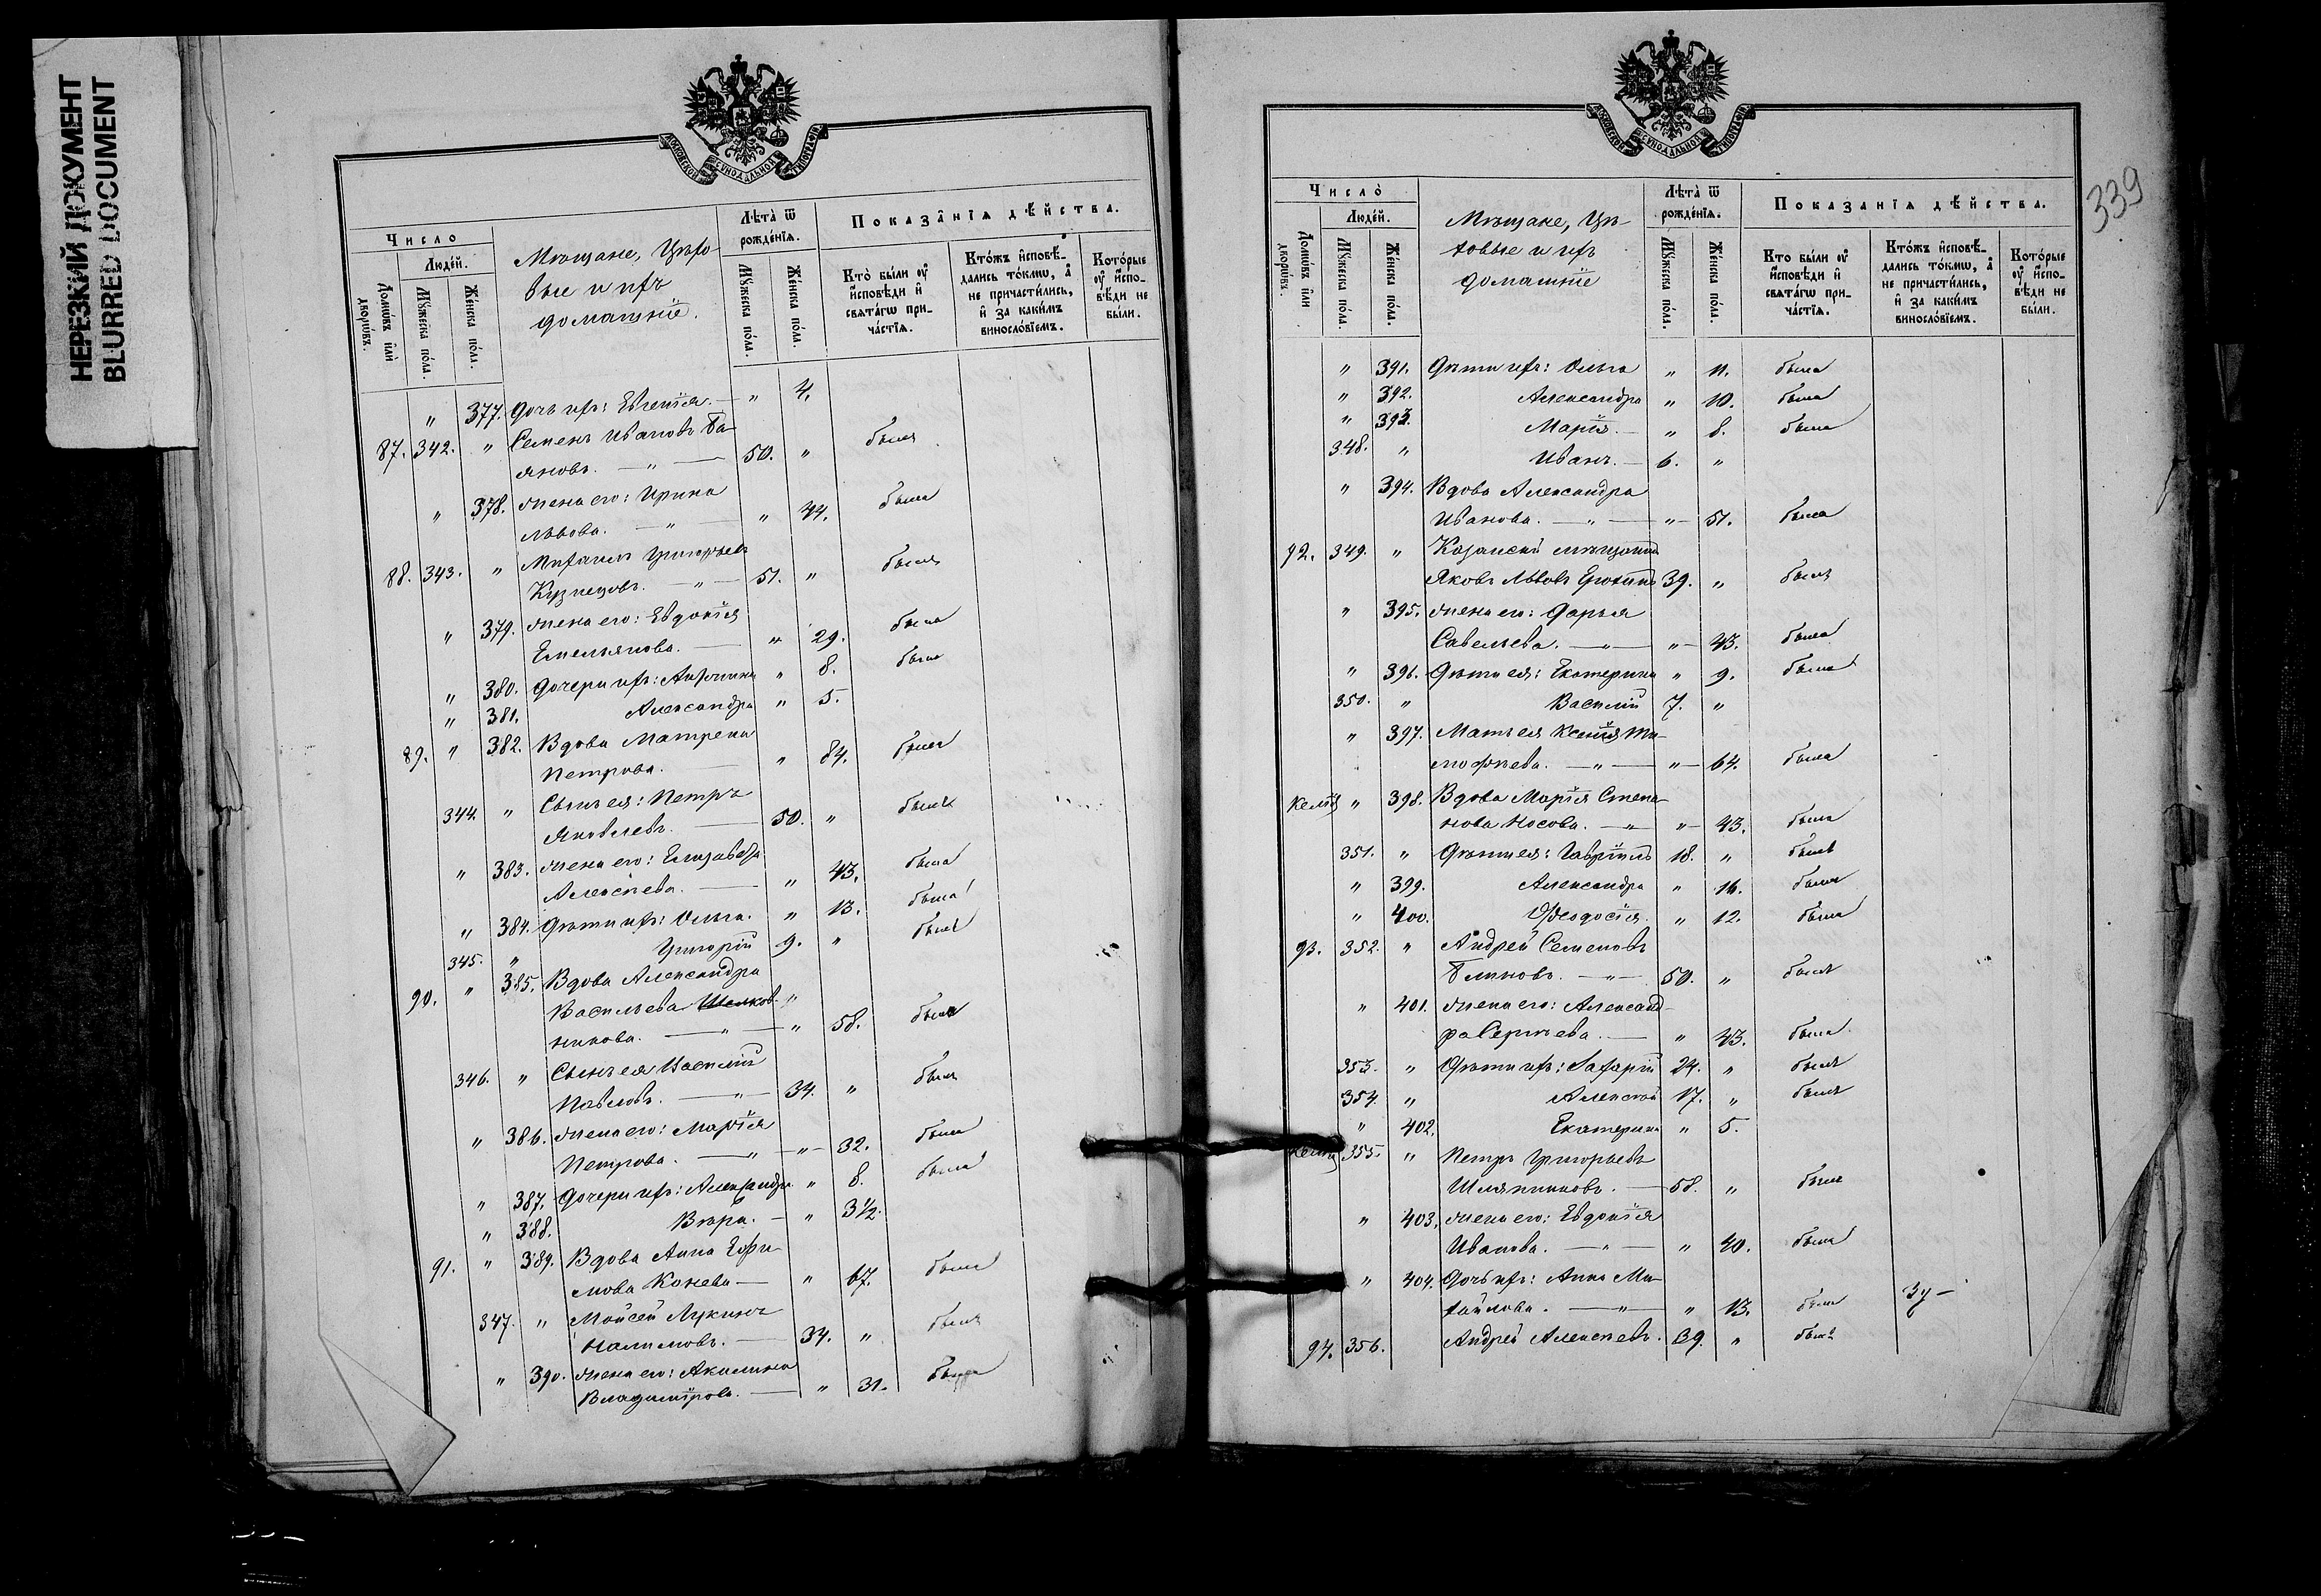 НЕРЕЗКИЙ ДОКУМЕНТ
BLURRED DOCUMENT
МОСКОВСКОЙ СѴНОДАЛЬНОЙ ТИПОГРАФІИ
Число
Людей.
Домовъ или дворовъ.
Мꙋжеска пола.
Женска пола.
Мѣщане, Цѣхо-
вые и ихъ
домашніе.
Лѣта ѿ рожденія.
Мꙋжеска пола.
Женска пола.
Показанія дѣйства.
Кто были ᲂу҆ исповѣди и свѧтагѡ при-частїѧ.
Ктожъ исповѣ-дались токмѡ, а не причастились, и за какимъ винословїемъ.
Которые ᲂу҆ испо-вѣди не были.
" 377. Дочь ихъ: Евгенія. — " 4.
87. 342. " Семенъ Ивановъ Ба-
яновъ. — " — 50. " былъ
" 378. Жена его: Ирина
Львова. — " — " 44. была
88. 343. " Михаилъ Григорьевъ
Кузнецовъ. — " — 51. " былъ
" 379. Жена его: Евдокія
Емельянова. — " 29. была
" 380. Дочери ихъ: " 8. была
" 381. Александра " 5.
89. " 382. Вдова Матрена
Петрова. — " 84. была
344. " Сынъ ея: Петръ
Яковлевъ. — 50. " былъ
" 383. Жена его: Елизавета
Алексѣева. — " 43. была
" 384. Дѣти ихъ: Ольга. " 13. была
345. " Григорій 9. " былъ
90. " 385. Вдова Александра
Васильева "
никова. — " — " 58. была
346. " Сынъ ея Василій
Павловъ. — " — 34. " былъ
" 386. Жена его: Марія
Петрова. — " — " — 32. была
" 387. Дочери ихъ: Александра " 8. была
" 388. Вѣра. — " 3½.
91. " 389. Вдова Анна Ефи-
мова Конева — " 67. была
347. " Мойсей Лукинъ
Налимовъ. — 34. " былъ
" 390. Жена его: Акилина
Владимірова. — " 31. была
339
МОСКОВСКОЙ СѴНОДАЛЬНОЙ ТИПОГРАФІИ
Число
Людей.
Домовъ или дворовъ.
Мꙋжеска пола.
Женска пола.
Мѣщане, Цѣ-
ховые и ихъ
домашніе
Лѣта ѿ рожденія.
Мꙋжеска пола.
Женска пола.
Показанія дѣйства.
Кто были ᲂу҆ исповѣди и свѧтагѡ при-частїѧ.
Ктожъ исповѣ-дались токмѡ, а не причастились, и за какимъ винословїемъ.
Которые ᲂу҆ испо-вѣди не были.
" 391. Дѣти ихъ: Ольга " 11. была
" 392. Александра " 10. была
" 393. Марія. — " 8. была
348. " Иванъ. — 6. "
" 394. Вдова Александра
Иванова. — " — " — 51. была
92. 349. " Казанскій мѣщанинъ
Яковъ Львовъ 39. " былъ
" 395. Жена его: Дарья
Савельева. — " — " — 43. была
" 396. Дѣти ея: Екатерина " 9. была
350. " Василій 7. "
" 397. Мать ея Ксенія Ти-
мофѣева. — " — " — 64. была
Келія " 398. Вдова Марія Степа-
нова Носова. — " " — 43. была
351. " Дѣти ея: Гавріилъ 18. " былъ
" 399. Александра " 16. была
" 400. Ѳеодосія. " 12. была
93. 352. " Андрей Семеновъ
Блиновъ. — " — 50. " былъ
" 401. Жена его: Александ-
ра Сергѣева. — " 43. была
353. " Дѣти ихъ: Захарій 24. " былъ
354. " Алексѣй 17. " былъ
" 402. Екатерина " 5.
Келія 355. " Петръ Григорьевъ
Шляпниковъ. — 58. " былъ
" 403. Жена его: Евдокія
Иванова. — " — " 40. была
" 404. Дочь ихъ: Анна Ми-
хайлова. — " — " 13. была
94. 356. Андрей Алексѣевъ. 39. " былъ